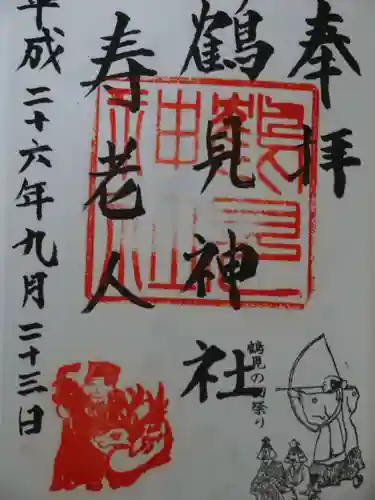 奉拝
鶴見神社
寿老人
平成二十六年九月二十三日
鶴見神社
鶴見の田祭り